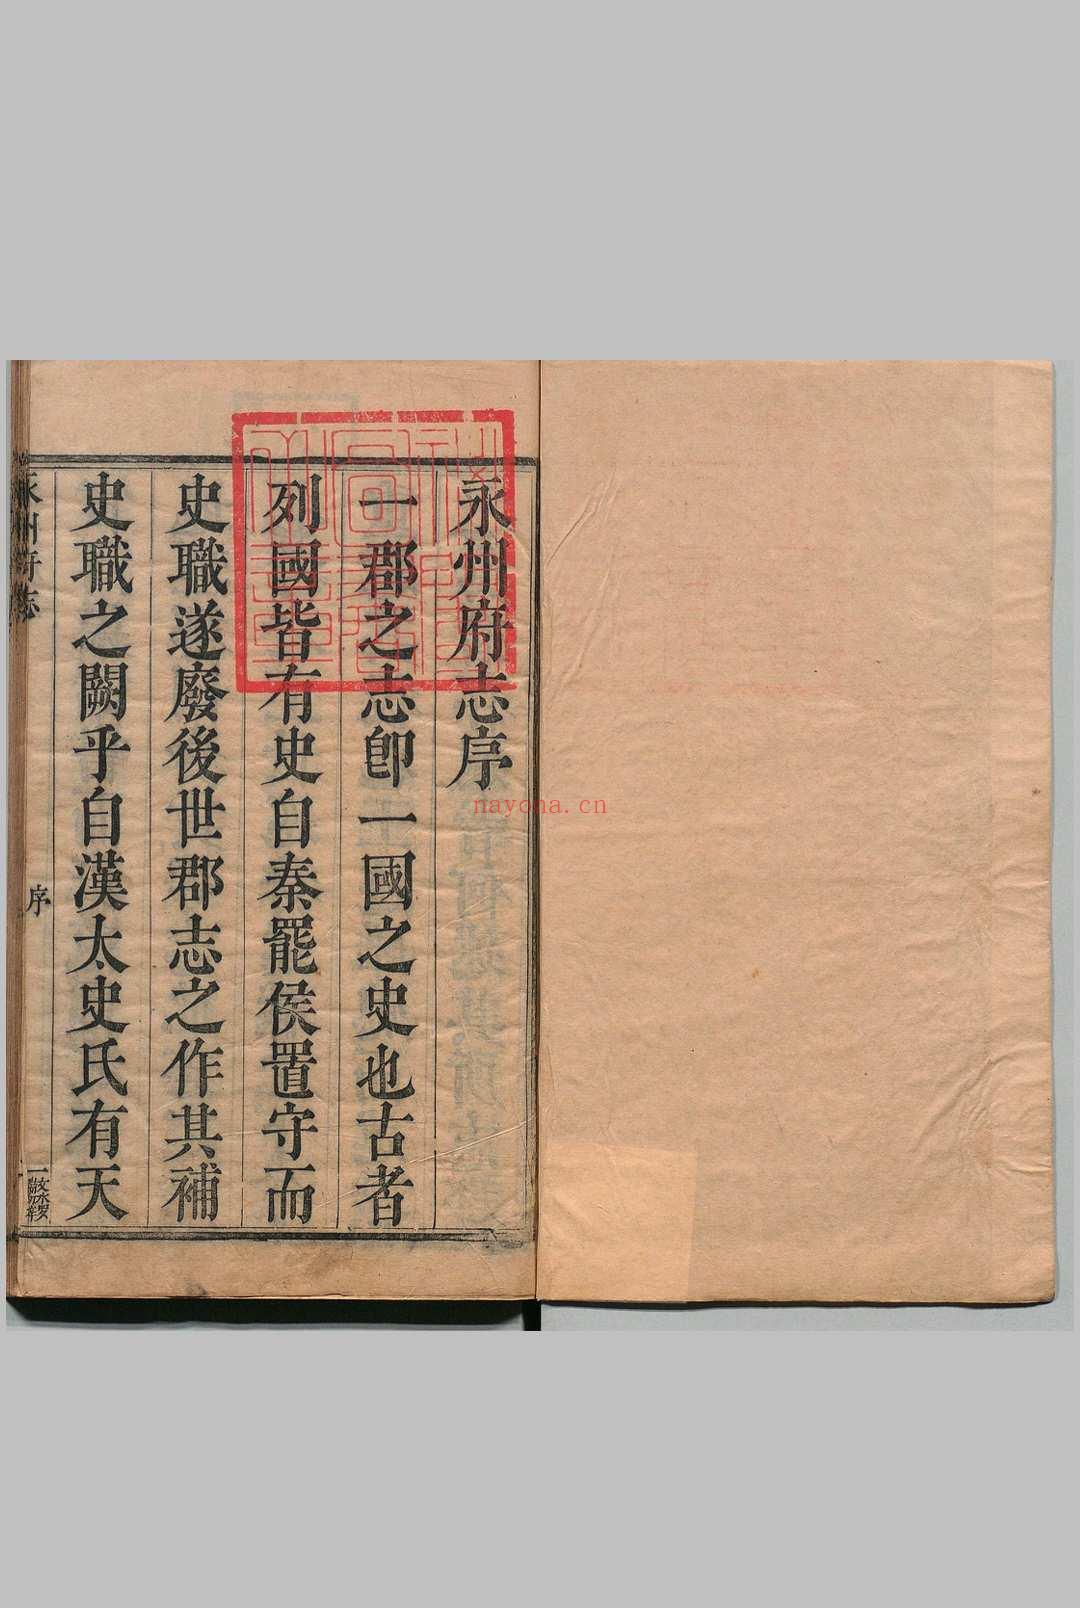 永州府志序
一郡之志卽一國之史也古者
列國皆有史自秦罷侯置守而
史職遂廢後世郡志之作其補
史職之闕乎自漢太史氏有天
永州府志
序
一
nayona.cn